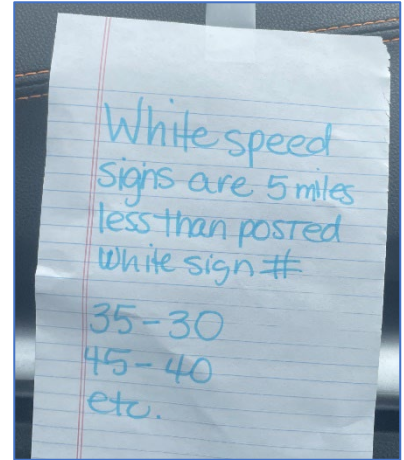 White speed
signs are 5 miles
less than posted
white sign #
35-30
45-40
etc.